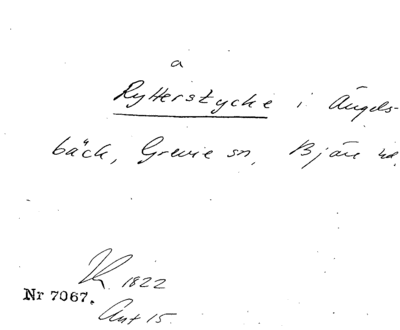 a
Rytterstycke i Ängels-
bäck, Grevie sn, Bjäre hd.
1822
Nr 7067.
Ant 15.